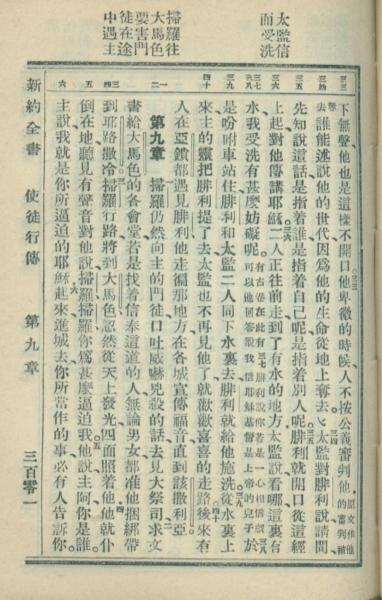 太監信
而受洗
掃羅往
大馬色
要害門
徒在途
中遇主
下無聲他也是這樣不開口他卑微的時候人不按公義審判他原文作他的審判被
奪去誰能述說他的世代因爲他的生命從地上奪去太監對腓利說請問
先知說這話是指着誰是指着自己呢是指着別人呢腓利就開口從這經
上起對他傳講耶穌二人正往前走到了有水的地方太監說看哪這裏有
水我受洗有甚麼妨礙呢有古卷在此有腓利說你若是一心相信就可以他回答說我信耶穌基督是上帝的兒子於
是吩咐車站住腓利和太監二人同下水裏去腓利就給他施洗從水裏上
來主的靈把腓利提了去太監也不再見他了就歡歡喜喜的走路後來有
人在亞鎖都遇見腓利他走徧那地方在各城宣傳福音直到該撒利亞
第九章 掃羅仍然向主的門徒口吐威嚇兇殺的話去見大祭司求文
書給大馬色的各會堂若是找着信奉這道的人無論男女都准他捆綁帶
到耶路撒冷掃羅行路將到大馬色忽然從天上發光四面照着他他就仆
倒在地聽見有聲音對他說掃羅掃羅你爲甚麼逼迫我他說主阿你是誰
主說我就是你所逼迫的耶穌起來進城去你所當作的事必有人告訴你
新約全書 使徒行傳 第九章 三百零一